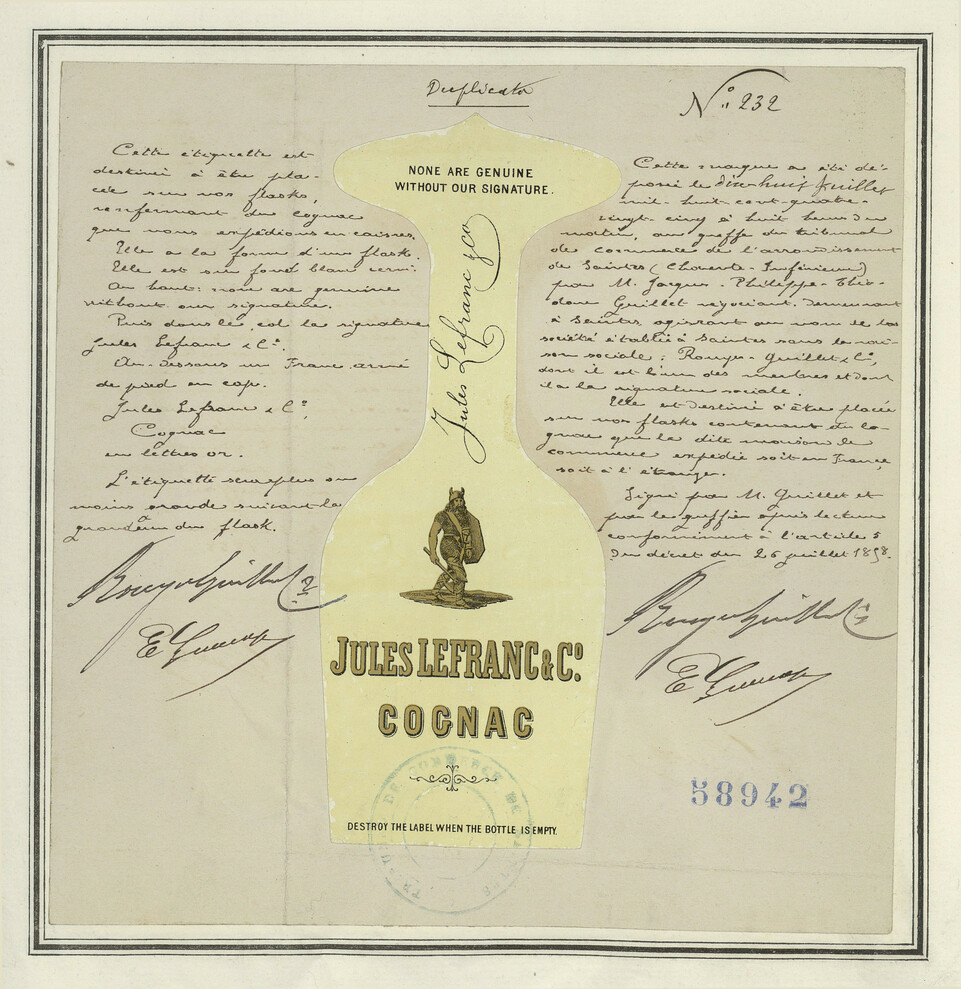 Duplicata
N° 232
Cette étiquette est
destinée à être pla-
cée sur nos flasks,
renfermant du cognac
que nous expédions en caisses.
Elle a la forme d'un flask.
Elle est sur fond blanc verni.
Au haut: none are genuine
without our signature.
Puis dans le col la signature
Jules Lefranc & Cie.
Au-dessous un Franc armé
de pied en cap.
Jules Lefranc & Cie,
Cognac
en lettres or.
L'étiquette sera plus ou
moins grande suivant la
grandeur du flask.
Rouyer Guillet & Cie
NONE ARE GENUINE
WITHOUT OUR SIGNATURE.
Jules Lefranc & Co
JULES LEFRANC & Co.
COGNAC
DESTROY THE LABEL WHEN THE BOTTLE IS EMPTY.
Cette marque a été dé-
posée le dix-huit Juillet
mil-huit-cent-quatre-
vingt-cinq à huit heures du
matin, au greffe du tribunal
de commerce de l'arrondissement
de Saintes (Charente-Inférieure)
par M. Jacques-Philippe-Théo-
dore Guillet négociant, demeurant
à Saintes agissant au nom de la
société établie à Saintes sous la rai-
son sociale: Rouyer-Guillet & Cie,
dont il est l'un des membres et dont
il a la signature sociale.
Elle est destinée à être placée
sur nos flasks contenant du co-
gnac que la dite maison de
commerce expédie soit en France,
soit à l'étranger.
Signé par M. Guillet et
par le greffier après lecture
conformément à l'article 5
du décret du 26 juillet 1858.
Rouyer Guillet & Cie
58942